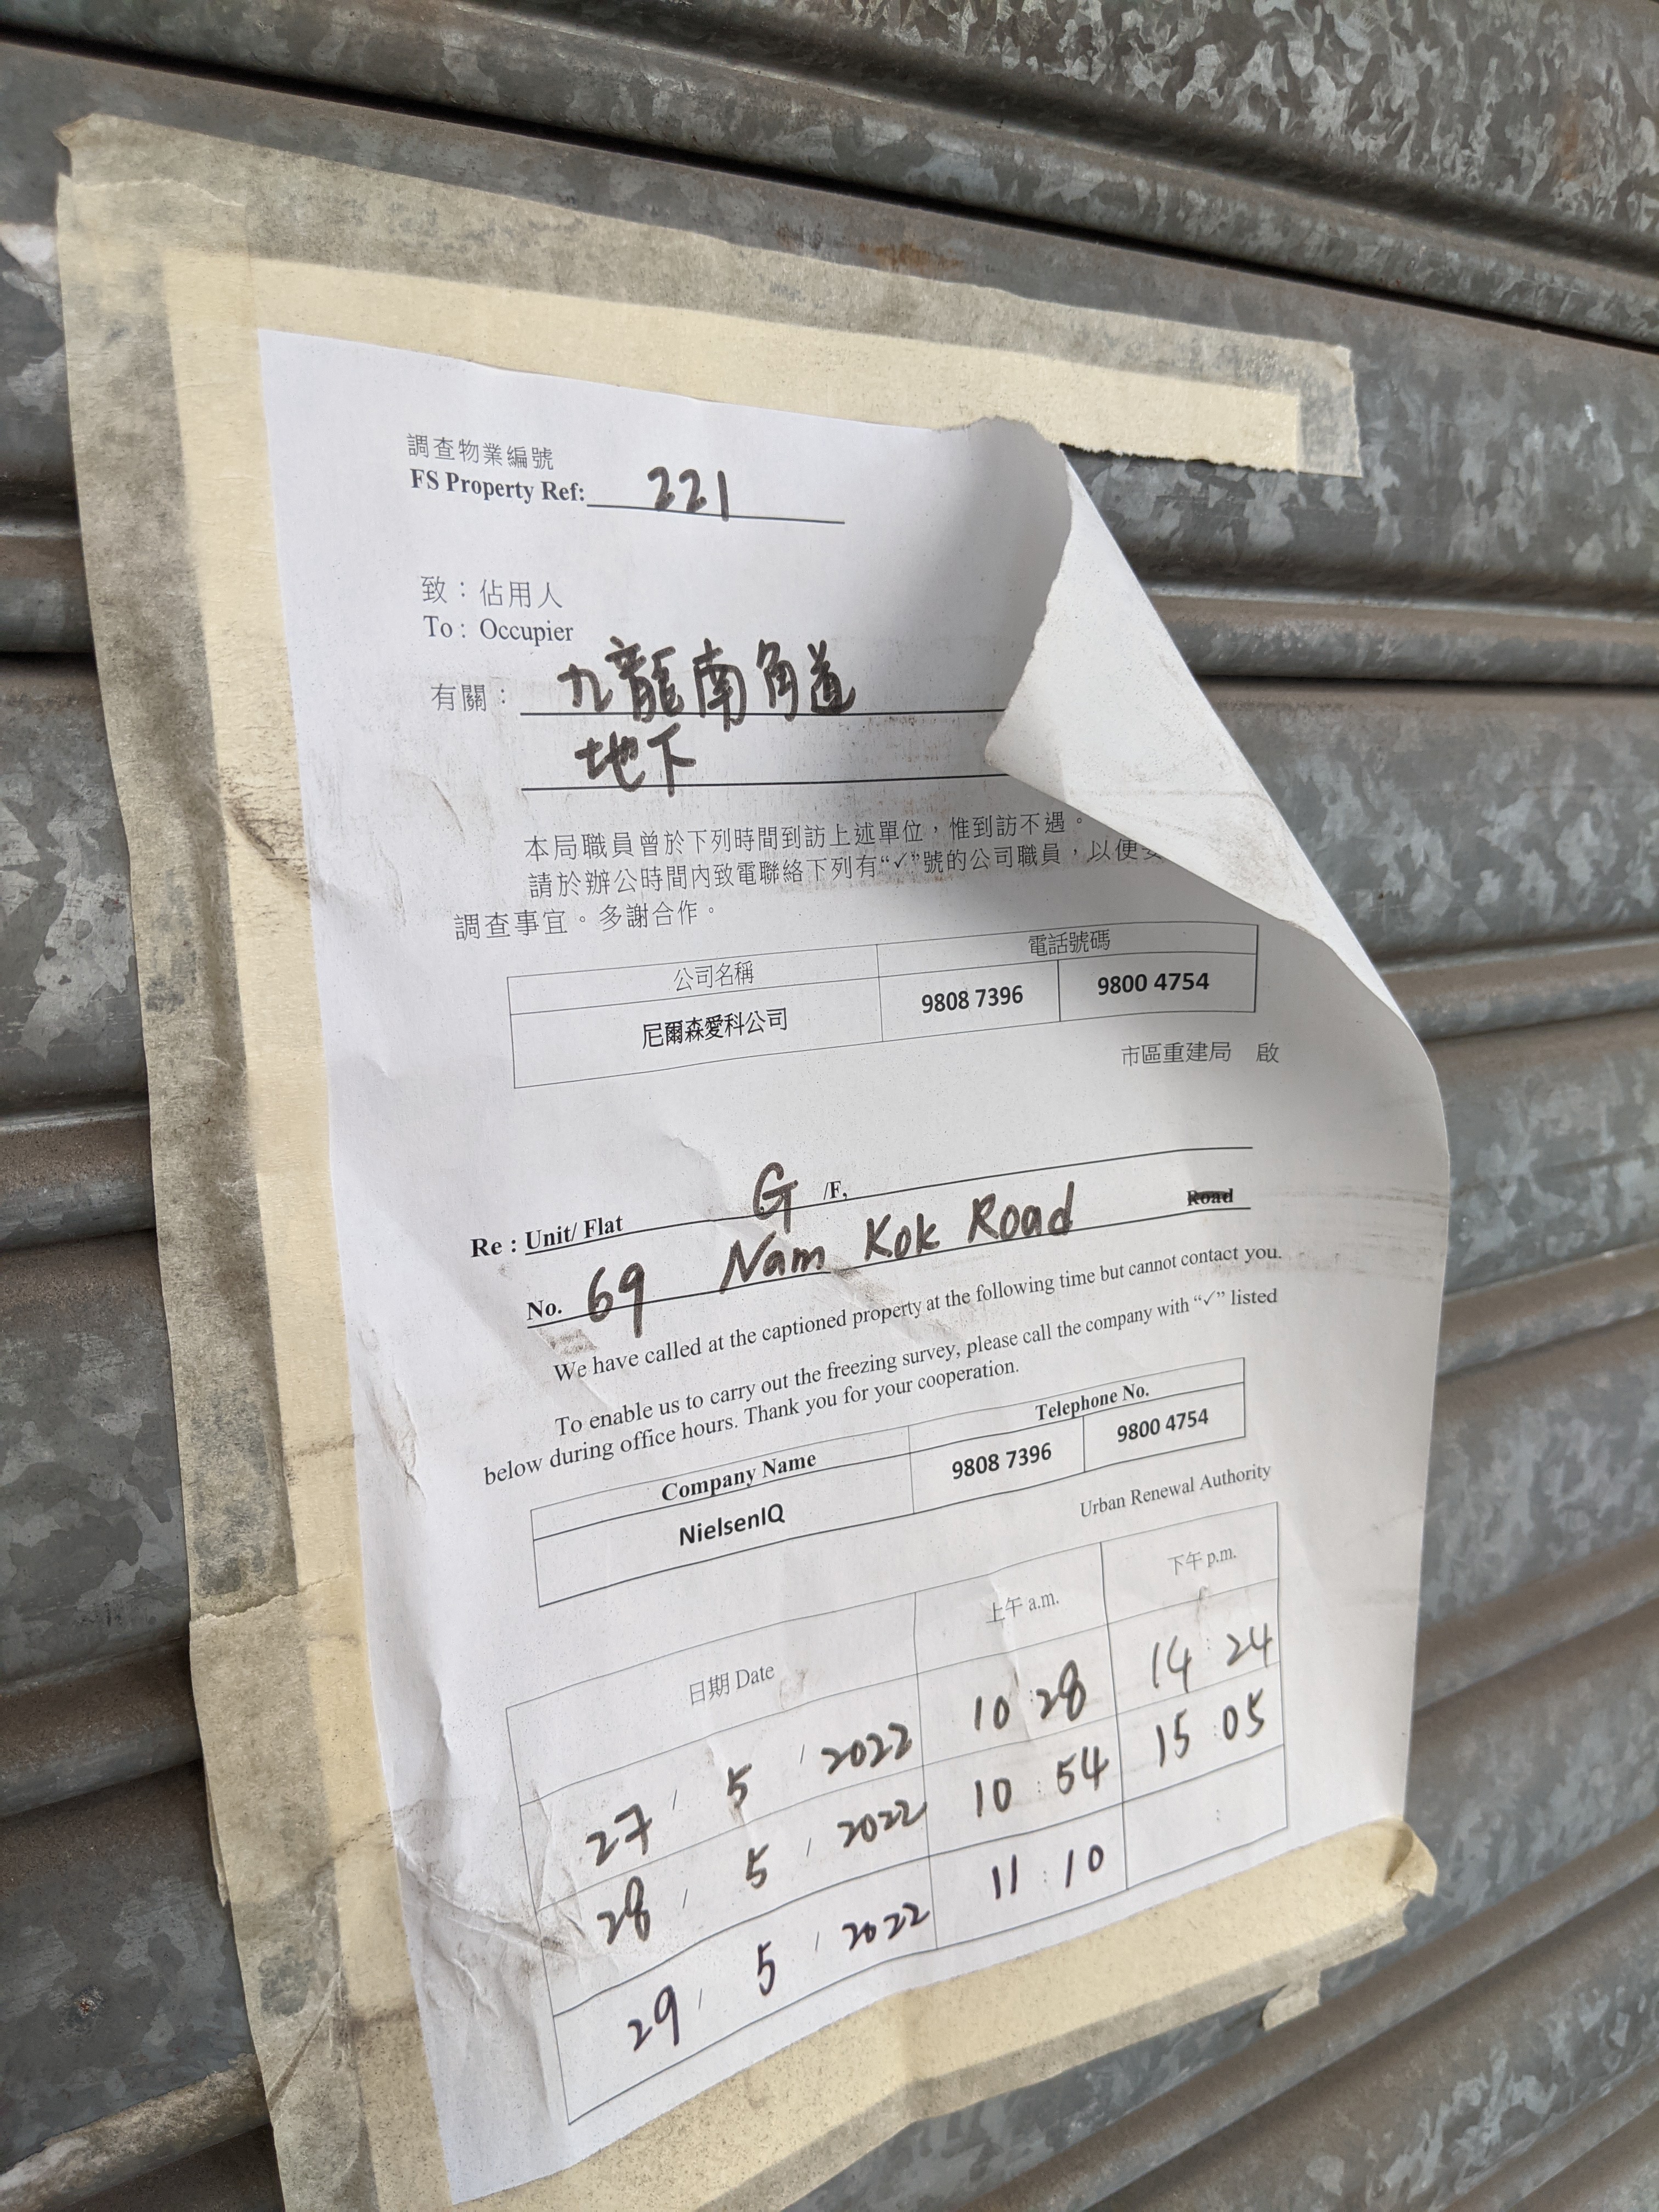 調查物業編號
FS Property Ref: 221
致：佔用人
To : Occupier
有關： 九龍南角道
地下
本局職員曾於下列時間到訪上述單位，惟到訪不遇。
請於辦公時間內致電聯絡下列有“✓”號的公司職員，以便
調查事宜。多謝合作。
公司名稱 電話號碼
尼爾森愛科公司 9808 7396 9800 4754
市區重建局 啟
Re : Unit/ Flat G /F,
No. 69 Nam Kok Road Road
We have called at the captioned property at the following time but cannot contact you.
To enable us to carry out the freezing survey, please call the company with “✓” listed
below during office hours. Thank you for your cooperation.
Company Name Telephone No.
NielsenIQ 9808 7396 9800 4754
Urban Renewal Authority
日期 Date 上午 a.m. 下午 p.m.
27 / 5 / 2022 10 : 28 14 : 24
28 / 5 / 2022 10 : 54 15 : 05
29 / 5 / 2022 11 : 10 :